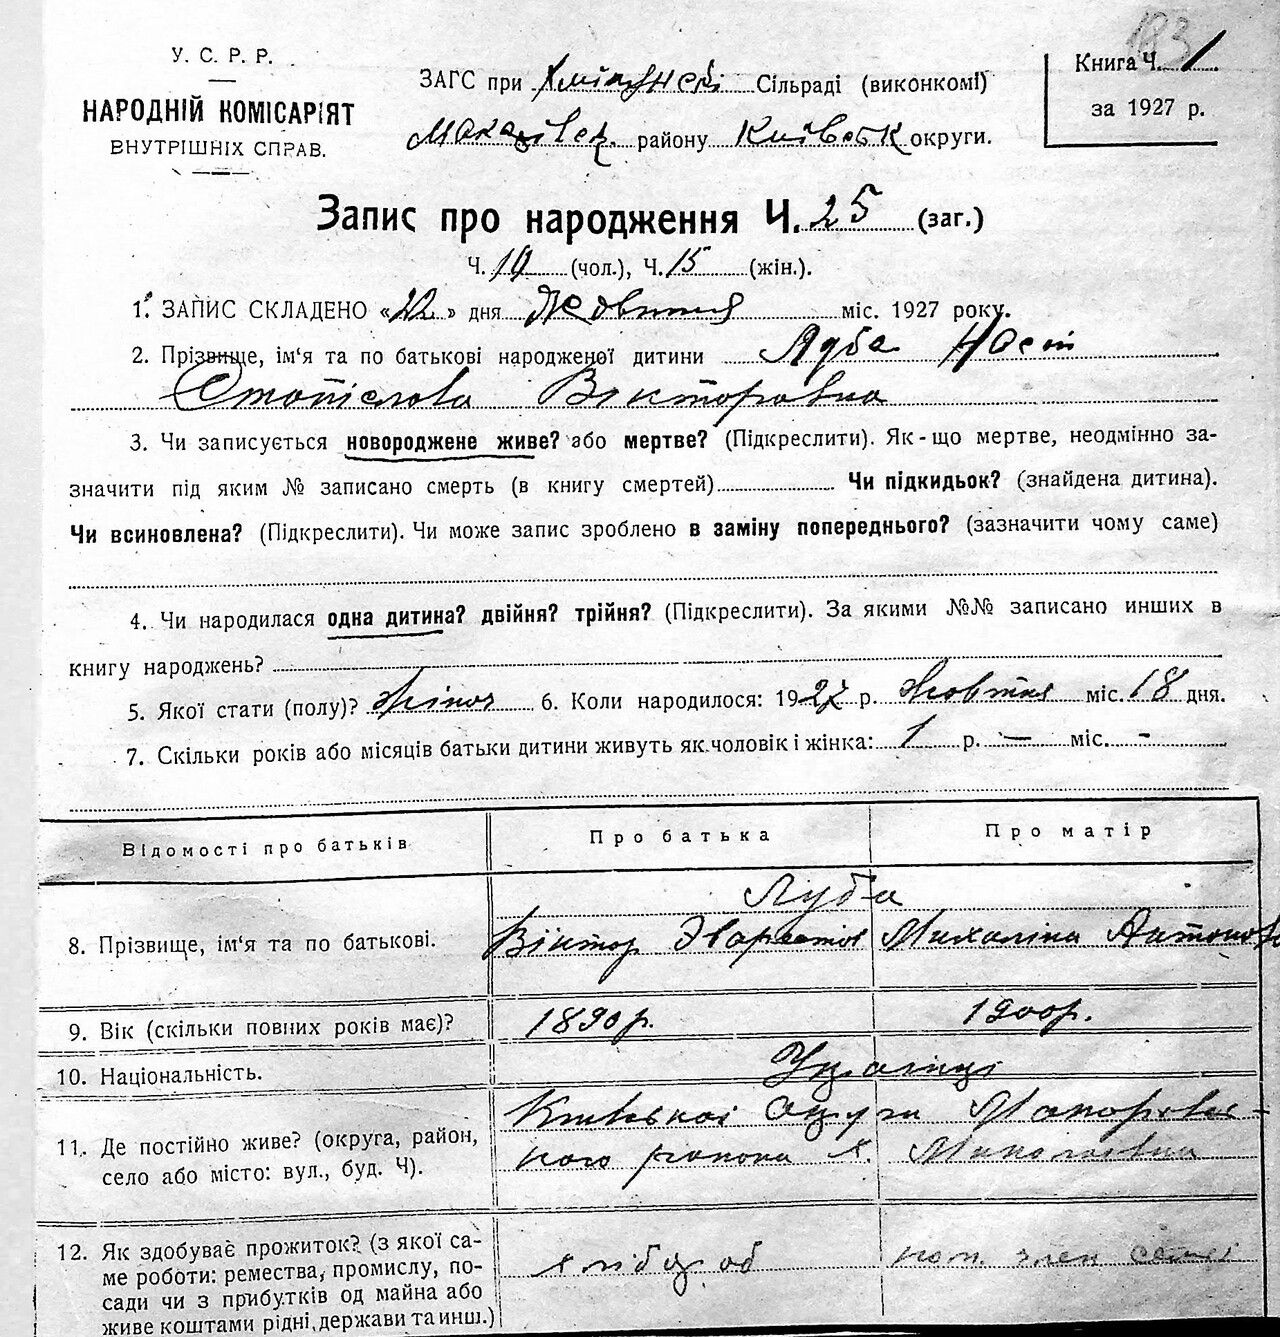 183
У. С. Р. Р.
НАРОДНІЙ КОМІСАРІЯТ
ВНУТРІШНІХ СПРАВ.
ЗАГС при Сільраді (виконкомі)
Макарівск. району Київськ округи.
Книга Ч. 1
за 1927 р.
Запис про народження Ч. 25 (заг.)
Ч. 10 (чол.), Ч. 15 (жін.).
1. ЗАПИС СКЛАДЕНО «22» дня Жовтня міс. 1927 року.
2. Прізвище, ім'я та по батькові народженої дитини
Вікторовна
3. Чи записується новороджене живе? або мертве? (Підкреслити). Як-що мертве, неодмінно за-
значити під яким № записано смерть (в книгу смертей) Чи підкидьок? (знайдена дитина).
Чи всиновлена? (Підкреслити). Чи може запис зроблено в заміну попереднього? (зазначити чому саме)
4. Чи народилася одна дитина? двійня? трійня? (Підкреслити). За якими №№ записано инших в
книгу народжень?
5. Якої стати (полу)? жіноч 6. Коли народилося: 1927 р. Жовтня міс. 18 дня.
7. Скільки років або місяців батьки дитини живуть як чоловік і жінка: 1 р. — міс. -
Відомості про батьків
Про батька
Про матір
8. Прізвище, ім'я та по батькові.
Віктор Михаліна Антонов
9. Вік (скільки повних років має)?
1890р.
1900р.
10. Національність.
Українці
11. Де постійно живе? (округа, район,
село або місто: вул., буд. Ч).
Київської Округи Макарівсь-
кого району х.
12. Як здобуває прожиток? (з якої са-
ме роботи: ремества, промислу, по-
сади чи з прибутків од майна або
живе коштами рідні, держави та инш.)
хлібороб
член семї